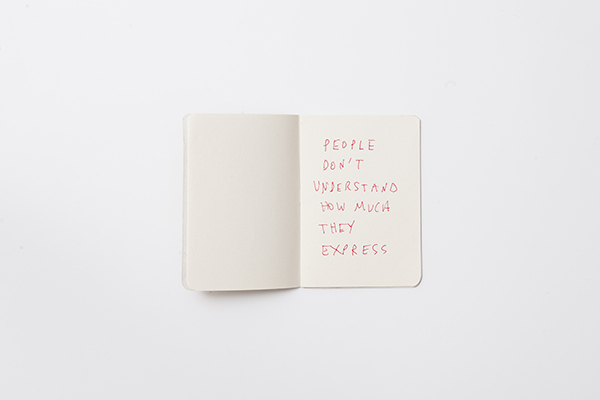 PEOPLE
DON'T
UNDERSTAND
HOW MUCH
THEY
EXPRESS